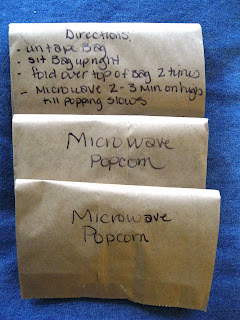 Directions
- untape Bag
- sit Bag upright
- fold over top of Bag 2 times
- Microwave 2-3 min on high
till popping slows
Microwave
Popcorn
Microwave
Popcorn